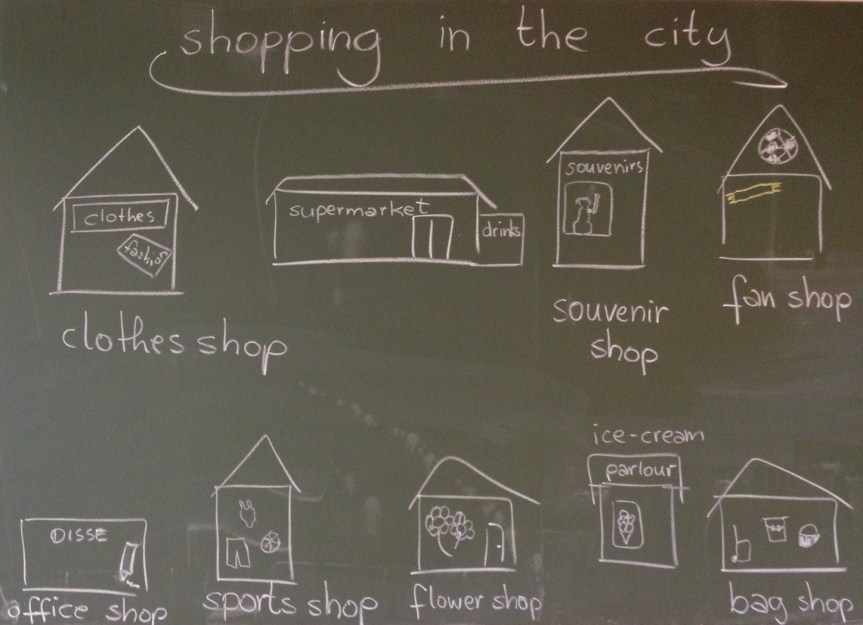 shopping in the city
clothes
fashion
clothes shop
supermarket
drinks
souvenirs
souvenir
shop
fan shop
DISSE
office shop
sports shop
flower shop
ice-cream
parlour
bag shop